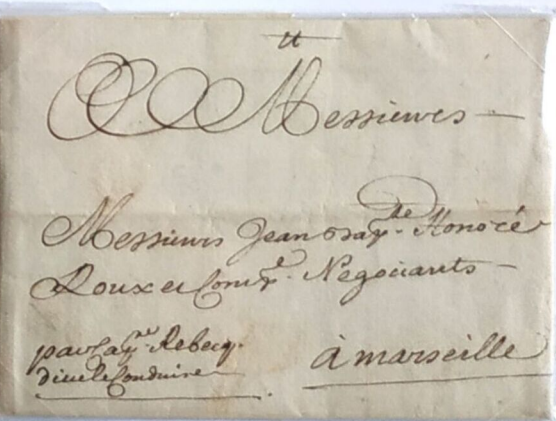 tt
Messieures
Messieurs Jean Bapte Honoré
Roux et Compe Negotiants
par Capne Rebecq.
dieu le Conduire
à marseille